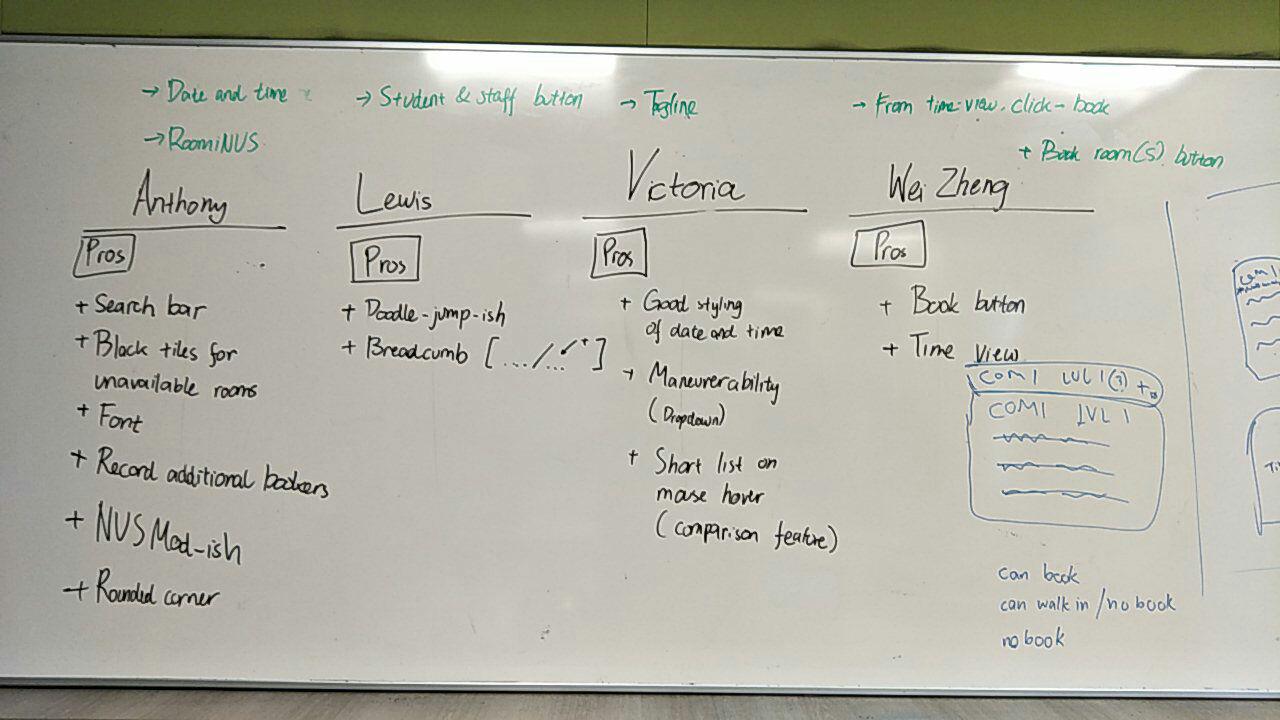 → Date and time
→ RoomiNUS
Anthony
Pros
+ Search bar
+ Block tiles for
unavailable rooms
+ Font
+ Record additional bookers
+ NUSMod-ish
+ Rounded corner
→ Student & staff button
Lewis
Pros
+ Doodle-jump-ish
+ Breadcumb [.../...]
→ Tagline
Victoria
Pros
+ Good styling
of date and time
+ Maneuverability
(Dropdown)
+ Short list on
mouse hover
(comparison feature)
→ From time-view. click - book
+ Book room(s) button
Wei Zheng
Pros
+ Book button
+ Time View
COM1 LVL 1 (?) +
COM1 LVL 1
can book
can walk in / no book
no book
com 1